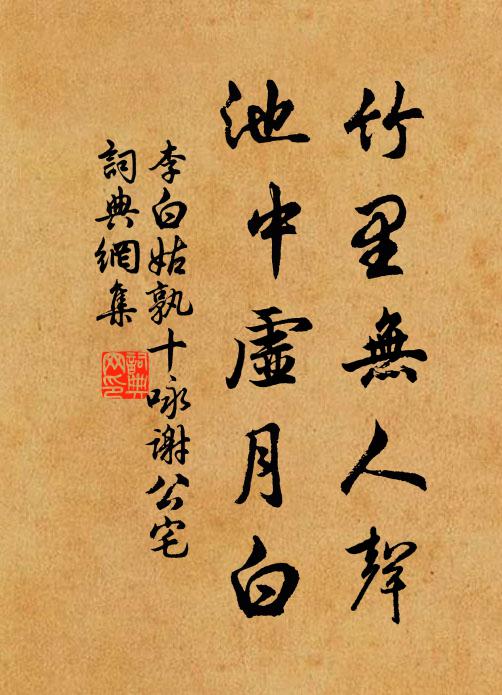 竹里無人聲
池中虛月白
李白姑孰十咏謝公宅
詞典網集
詞典網印